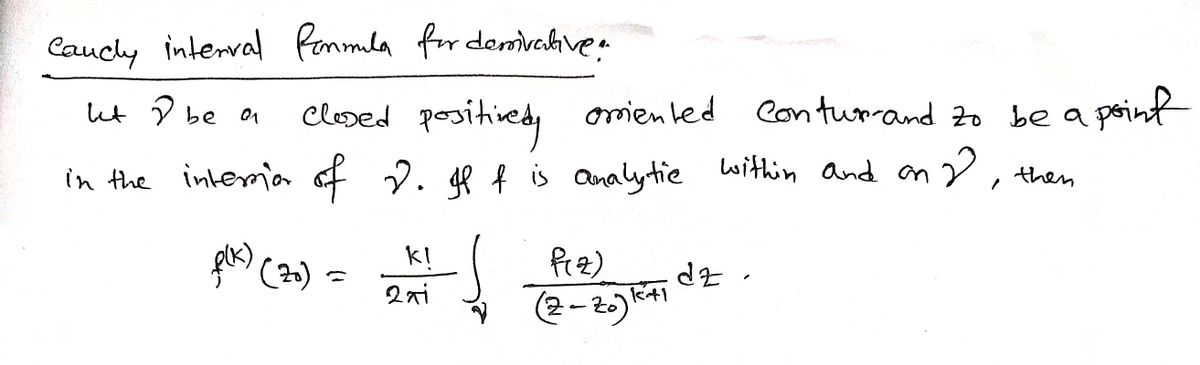 Cauchy interval formula for derivative:
Let γ be a closed positively oriented contur and z₀ be a point
in the interior of γ. If f is analytic within and on γ, then
f⁽ᵏ⁾(z₀) = k!/2πi ∫_γ f(z)/(z-z₀)ᵏ⁺¹ dz .